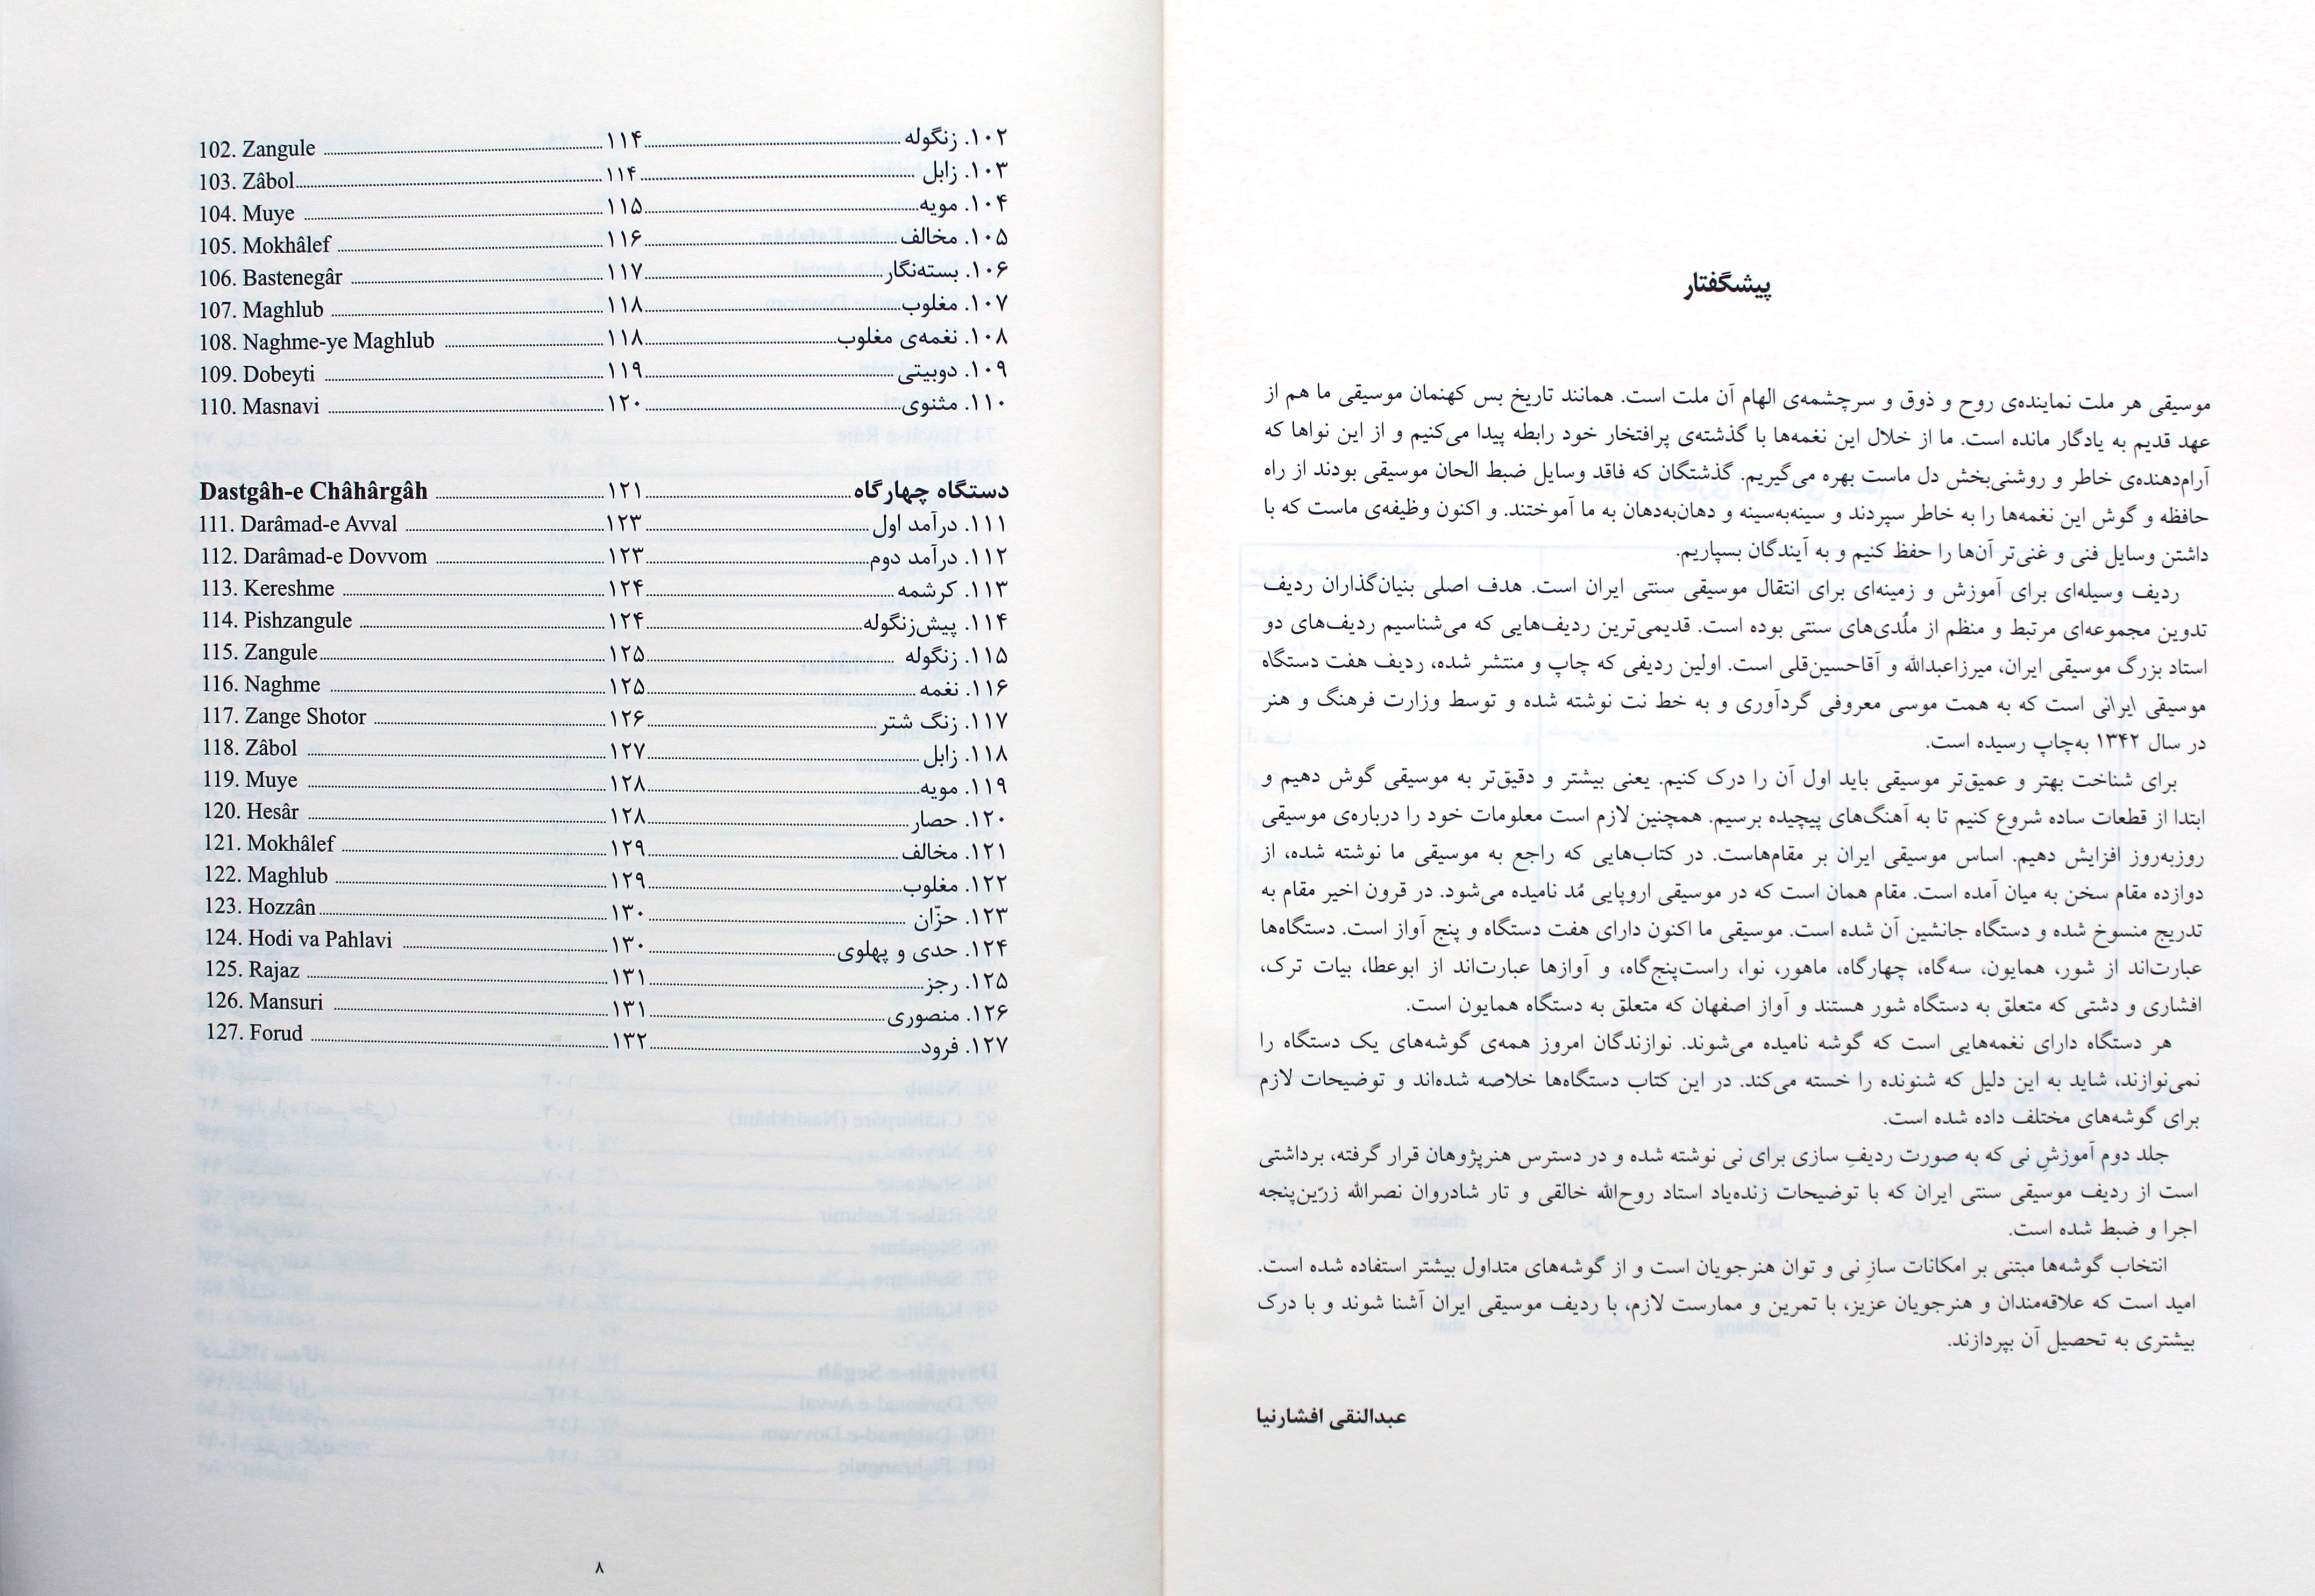 102. Zangule ........ ۱۱۴ ........ ۱۰۲. زنگوله
103. Zâbol ........ ۱۱۴ ........ ۱۰۳. زابل
104. Muye ........ ۱۱۵ ........ ۱۰۴. مویه
105. Mokhâlef ........ ۱۱۶ ........ ۱۰۵. مخالف
106. Bastenegâr ........ ۱۱۷ ........ ۱۰۶. بسته‌نگار
107. Maghlub ........ ۱۱۸ ........ ۱۰۷. مغلوب
108. Naghme-ye Maghlub ........ ۱۱۸ ........ ۱۰۸. نغمه‌ی مغلوب
109. Dobeyti ........ ۱۱۹ ........ ۱۰۹. دوبیتی
110. Masnavi ........ ۱۲۰ ........ ۱۱۰. مثنوی
Dastgâh-e Châhârgâh ........ ۱۲۱ ........ دستگاه چهارگاه
111. Darâmad-e Avval ........ ۱۲۳ ........ ۱۱۱. درآمد اول
112. Darâmad-e Dovvom ........ ۱۲۳ ........ ۱۱۲. درآمد دوم
113. Kereshme ........ ۱۲۴ ........ ۱۱۳. کرشمه
114. Pishzangule ........ ۱۲۴ ........ ۱۱۴. پیش‌زنگوله
115. Zangule ........ ۱۲۵ ........ ۱۱۵. زنگوله
116. Naghme ........ ۱۲۵ ........ ۱۱۶. نغمه
117. Zange Shotor ........ ۱۲۶ ........ ۱۱۷. زنگ شتر
118. Zâbol ........ ۱۲۷ ........ ۱۱۸. زابل
119. Muye ........ ۱۲۸ ........ ۱۱۹. مویه
120. Hesâr ........ ۱۲۸ ........ ۱۲۰. حصار
121. Mokhâlef ........ ۱۲۹ ........ ۱۲۱. مخالف
122. Maghlub ........ ۱۲۹ ........ ۱۲۲. مغلوب
123. Hozzân ........ ۱۳۰ ........ ۱۲۳. حزّان
124. Hodi va Pahlavi ........ ۱۳۰ ........ ۱۲۴. حدی و پهلوی
125. Rajaz ........ ۱۳۱ ........ ۱۲۵. رجز
126. Mansuri ........ ۱۳۱ ........ ۱۲۶. منصوری
127. Forud ........ ۱۳۲ ........ ۱۲۷. فرود
۸
پیشگفتار
موسیقی هر ملت نماینده‌ی روح و ذوق و سرچشمه‌ی الهام آن ملت است. همانند تاریخ بس کهنمان موسیقی ما هم از
عهد قدیم به یادگار مانده است. ما از خلال این نغمه‌ها با گذشته‌ی پرافتخار خود رابطه پیدا می‌کنیم و از این نواها که
آرام‌دهنده‌ی خاطر و روشنی‌بخش دل ماست بهره می‌گیریم. گذشتگان که فاقد وسایل ضبط الحان موسیقی بودند از راه
حافظه و گوش این نغمه‌ها را به خاطر سپردند و سینه‌به‌سینه و دهان‌به‌دهان به ما آموختند. و اکنون وظیفه‌ی ماست که با
داشتن وسایل فنی و غنی‌تر آن‌ها را حفظ کنیم و به آیندگان بسپاریم.
ردیف وسیله‌ای برای آموزش و زمینه‌ای برای انتقال موسیقی سنتی ایران است. هدف اصلی بنیان‌گذاران ردیف
تدوین مجموعه‌ای مرتبط و منظم از ملُدی‌های سنتی بوده است. قدیمی‌ترین ردیف‌هایی که می‌شناسیم ردیف‌های دو
استاد بزرگ موسیقی ایران، میرزاعبدالله و آقاحسین‌قلی است. اولین ردیفی که چاپ و منتشر شده، ردیف هفت دستگاه
موسیقی ایرانی است که به همت موسی معروفی گردآوری و به خط نت نوشته شده و توسط وزارت فرهنگ و هنر
در سال ۱۳۴۲ به‌چاپ رسیده است.
برای شناخت بهتر و عمیق‌تر موسیقی باید اول آن را درک کنیم. یعنی بیشتر و دقیق‌تر به موسیقی گوش دهیم و
ابتدا از قطعات ساده شروع کنیم تا به آهنگ‌های پیچیده برسیم. همچنین لازم است معلومات خود را درباره‌ی موسیقی
روزبه‌روز افزایش دهیم. اساس موسیقی ایران بر مقام‌هاست. در کتاب‌هایی که راجع به موسیقی ما نوشته شده، از
دوازده مقام سخن به میان آمده است. مقام همان است که در موسیقی اروپایی مُد نامیده می‌شود. در قرون اخیر مقام به
تدریج منسوخ شده و دستگاه جانشین آن شده است. موسیقی ما اکنون دارای هفت دستگاه و پنج آواز است. دستگاه‌ها
عبارت‌اند از شور، همایون، سه‌گاه، چهارگاه، ماهور، نوا، راست‌پنج‌گاه، و آوازها عبارت‌اند از ابوعطا، بیات ترک،
افشاری و دشتی که متعلق به دستگاه شور هستند و آواز اصفهان که متعلق به دستگاه همایون است.
هر دستگاه دارای نغمه‌هایی است که گوشه نامیده می‌شوند. نوازندگان امروز همه‌ی گوشه‌های یک دستگاه را
نمی‌نوازند، شاید به این دلیل که شنونده را خسته می‌کند. در این کتاب دستگاه‌ها خلاصه شده‌اند و توضیحات لازم
برای گوشه‌های مختلف داده شده است.
جلد دوم آموزشِ نی که به صورت ردیفِ سازی برای نی نوشته شده و در دسترس هنرپژوهان قرار گرفته، برداشتی
است از ردیف موسیقی سنتی ایران که با توضیحات زنده‌یاد استاد روح‌الله خالقی و تار شادروان نصرالله زرّین‌پنجه
اجرا و ضبط شده است.
انتخاب گوشه‌ها مبتنی بر امکانات سازِ نی و توان هنرجویان است و از گوشه‌های متداول بیشتر استفاده شده است.
امید است که علاقه‌مندان و هنرجویان عزیز، با تمرین و ممارست لازم، با ردیف موسیقی ایران آشنا شوند و با درک
بیشتری به تحصیل آن بپردازند.
عبدالنقی افشارنیا